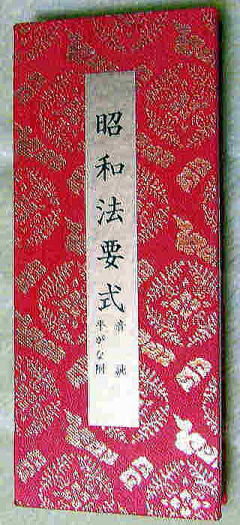 昭和法要式
音訓
平がな附